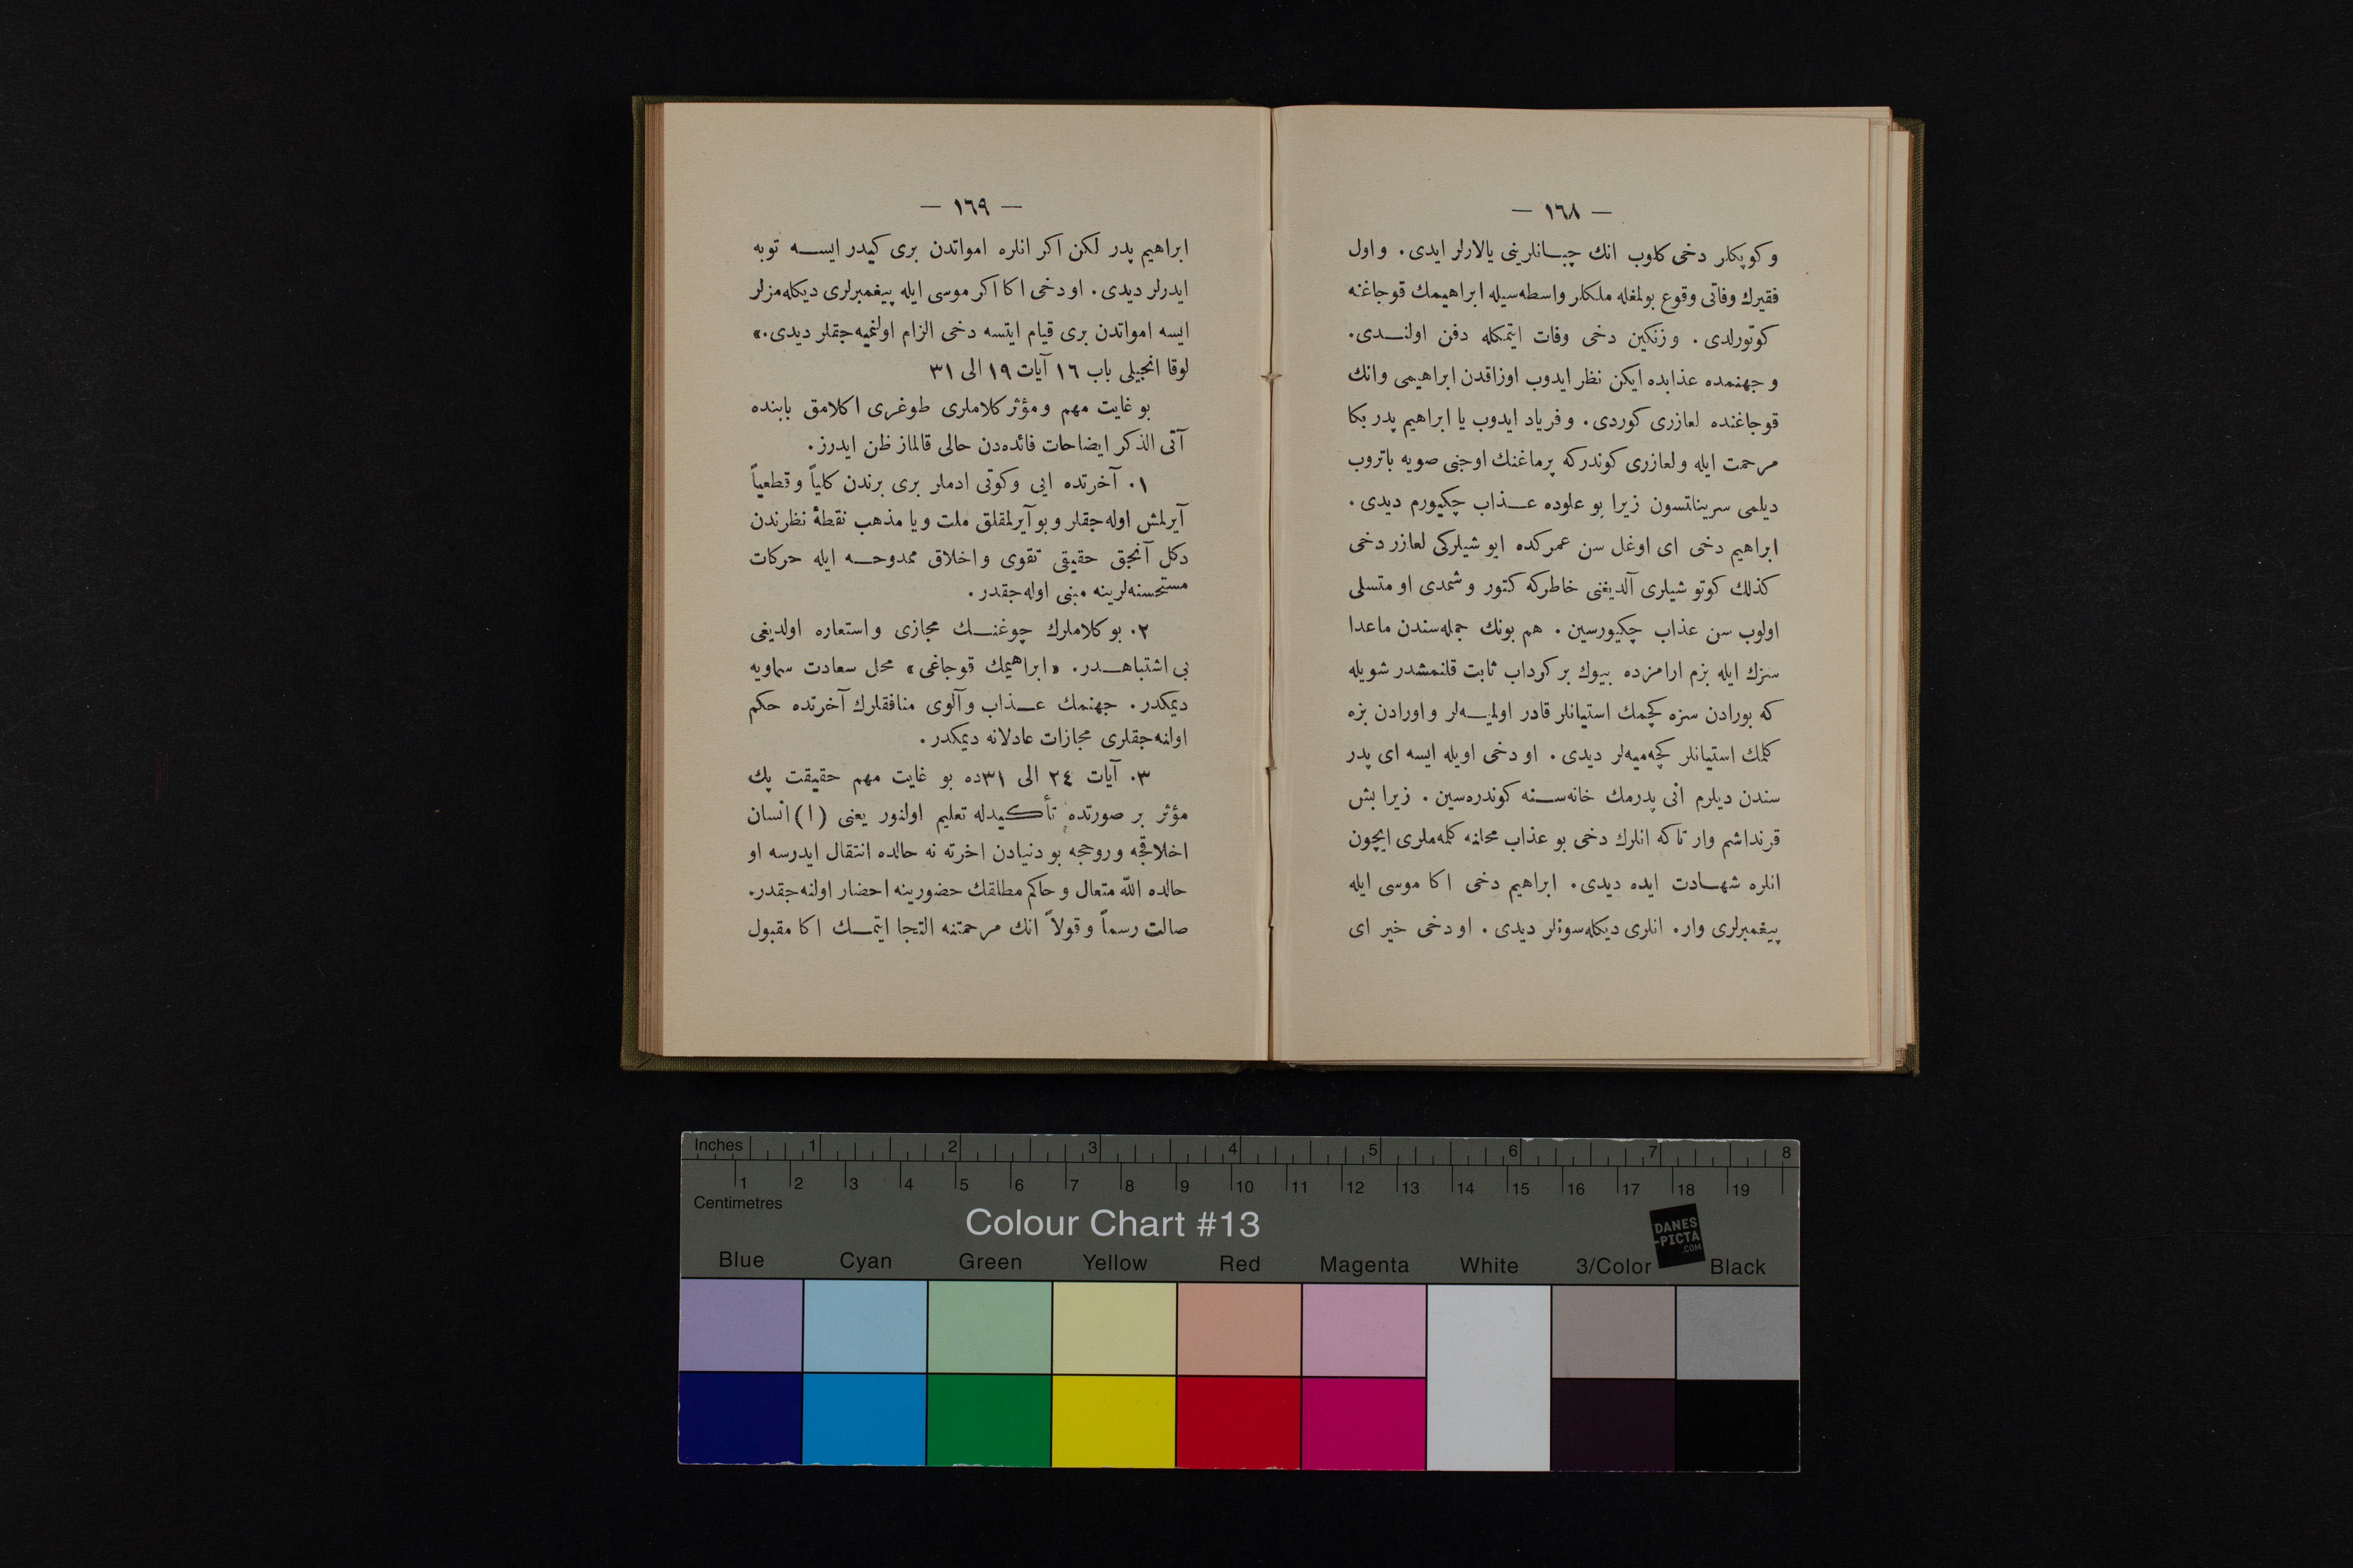 — ١٦٨ —
و كوپكلر دخى كلوب انك چبــانلرينى يالارلر ايدى. و اول
فقيرك وفاتى وقوع بولمغله ملكلر واسطه‌سيله ابراهيمك قوجاغنه
كوتورلدى. و زنكين دخى وفات ايتمكله دفن اولنــدى.
و جهنمده عذابده ايكن نظر ايدوب اوزاقدن ابراهيمى و انك
قوجاغنده لعازرى كوردى. و فرياد ايدوب يا ابراهيم پدر بكا
مرحمت ايله و لعازرى كوندركه پرماغنك اوجنى صويه باتروب
ديلمى سريناتسون زيرا بو علوده عــذاب چكيورم ديدى.
ابراهيم دخى اى اوغل سن عمركده ايو شيلركى لعازر دخى
كذلك كوتو شيلرى آلديغنى خاطركه كتور و شمدى او متسلى
اولوب سن عذاب چكيورسين. هم بونك جمله‌سندن ماعدا
سزك ايله بزم ارامزده بيوك بر كرداب ثابت قلنمشدر شويله
كه بورادن سزه كچمك استيانلر قادر اولميــه‌لر و اورادن بزه
كلمك استيانلر كچه‌ميه‌لر ديدى. او دخى اويله ايسه اى پدر
سندن ديلرم انى پدرمك خانه‌ســنه كوندره‌سين. زيرا بش
قرنداشم وار تاكه انلرك دخى بو عذاب محلنه كلمه‌ملرى ايچون
انلره شهــادت ايده ديدى. ابراهيم دخى اكا موسى ايله
پيغمبرلرى وار. انلرى ديكله‌سونلر ديدى. او دخى خير اى
— ١٦٩ —
ابراهيم پدر لكن اكر انلره امواتدن برى كيدر ايســه توبه
ايدرلر ديدى. او دخى اكا اكر موسى ايله پيغمبرلرى ديكله‌مزلر
ايسه امواتدن برى قيام ايتسه دخى الزام اولنميه‌جقلر ديدى.»
لوقا انجيلى باب ١٦ آيات ١٩ الى ٣١
بو غايت مهم و مؤثر كلاملرى طوغرى اكلامق بابنده
آتى الذكر ايضاحات فائده‌دن خالى قالماز ظن ايدرز.
١. آخرتده ايى و كوتى ادملر برى برندن كلياً و قطعياً
آيرلمش اوله‌جقلر و بو آيرلمقلق ملت و يا مذهب نقطهٔ نظرندن
دكل آنجق حقيقى تقوى و اخلاق ممدوحــه ايله حركات
مستحسنه‌لرينه مبنى اوله‌جقدر.
٢. بو كلاملرك چوغنــك مجازى و استعاره اولديغى
بى اشتباهــدر. «ابراهيمك قوجاغى» محل سعادت سماويه
ديمكدر. جهنمك عــذاب و آلوى منافقلرك آخرتده حكم
اولنه‌جقلرى مجازات عادلانه ديمكدر.
٣. آيات ٢٤ الى ٣١ده بو غايت مهم حقيقت پك
مؤثر بر صورتده تأكيدله تعليم اولنور يعنى (ا) انسان
اخلاقجه و روحجه بو دنيادن اخرته نه حالده انتقال ايدرسه او
حالده الله متعال و حاكم مطلقك حضورينه احضار اولنه‌جقدر.
صالت رسماً و قولاً انك مرحمتنه التجا ايتمــك اكا مقبول
Inches 1 2 3 4 5 6 7 8
1 2 3 4 5 6 7 8 9 10 11 12 13 14 15 16 17 18 19
Centimetres
Colour Chart #13
DANES
-PICTA
.COM
Blue Cyan Green Yellow Red Magenta White 3/Color Black